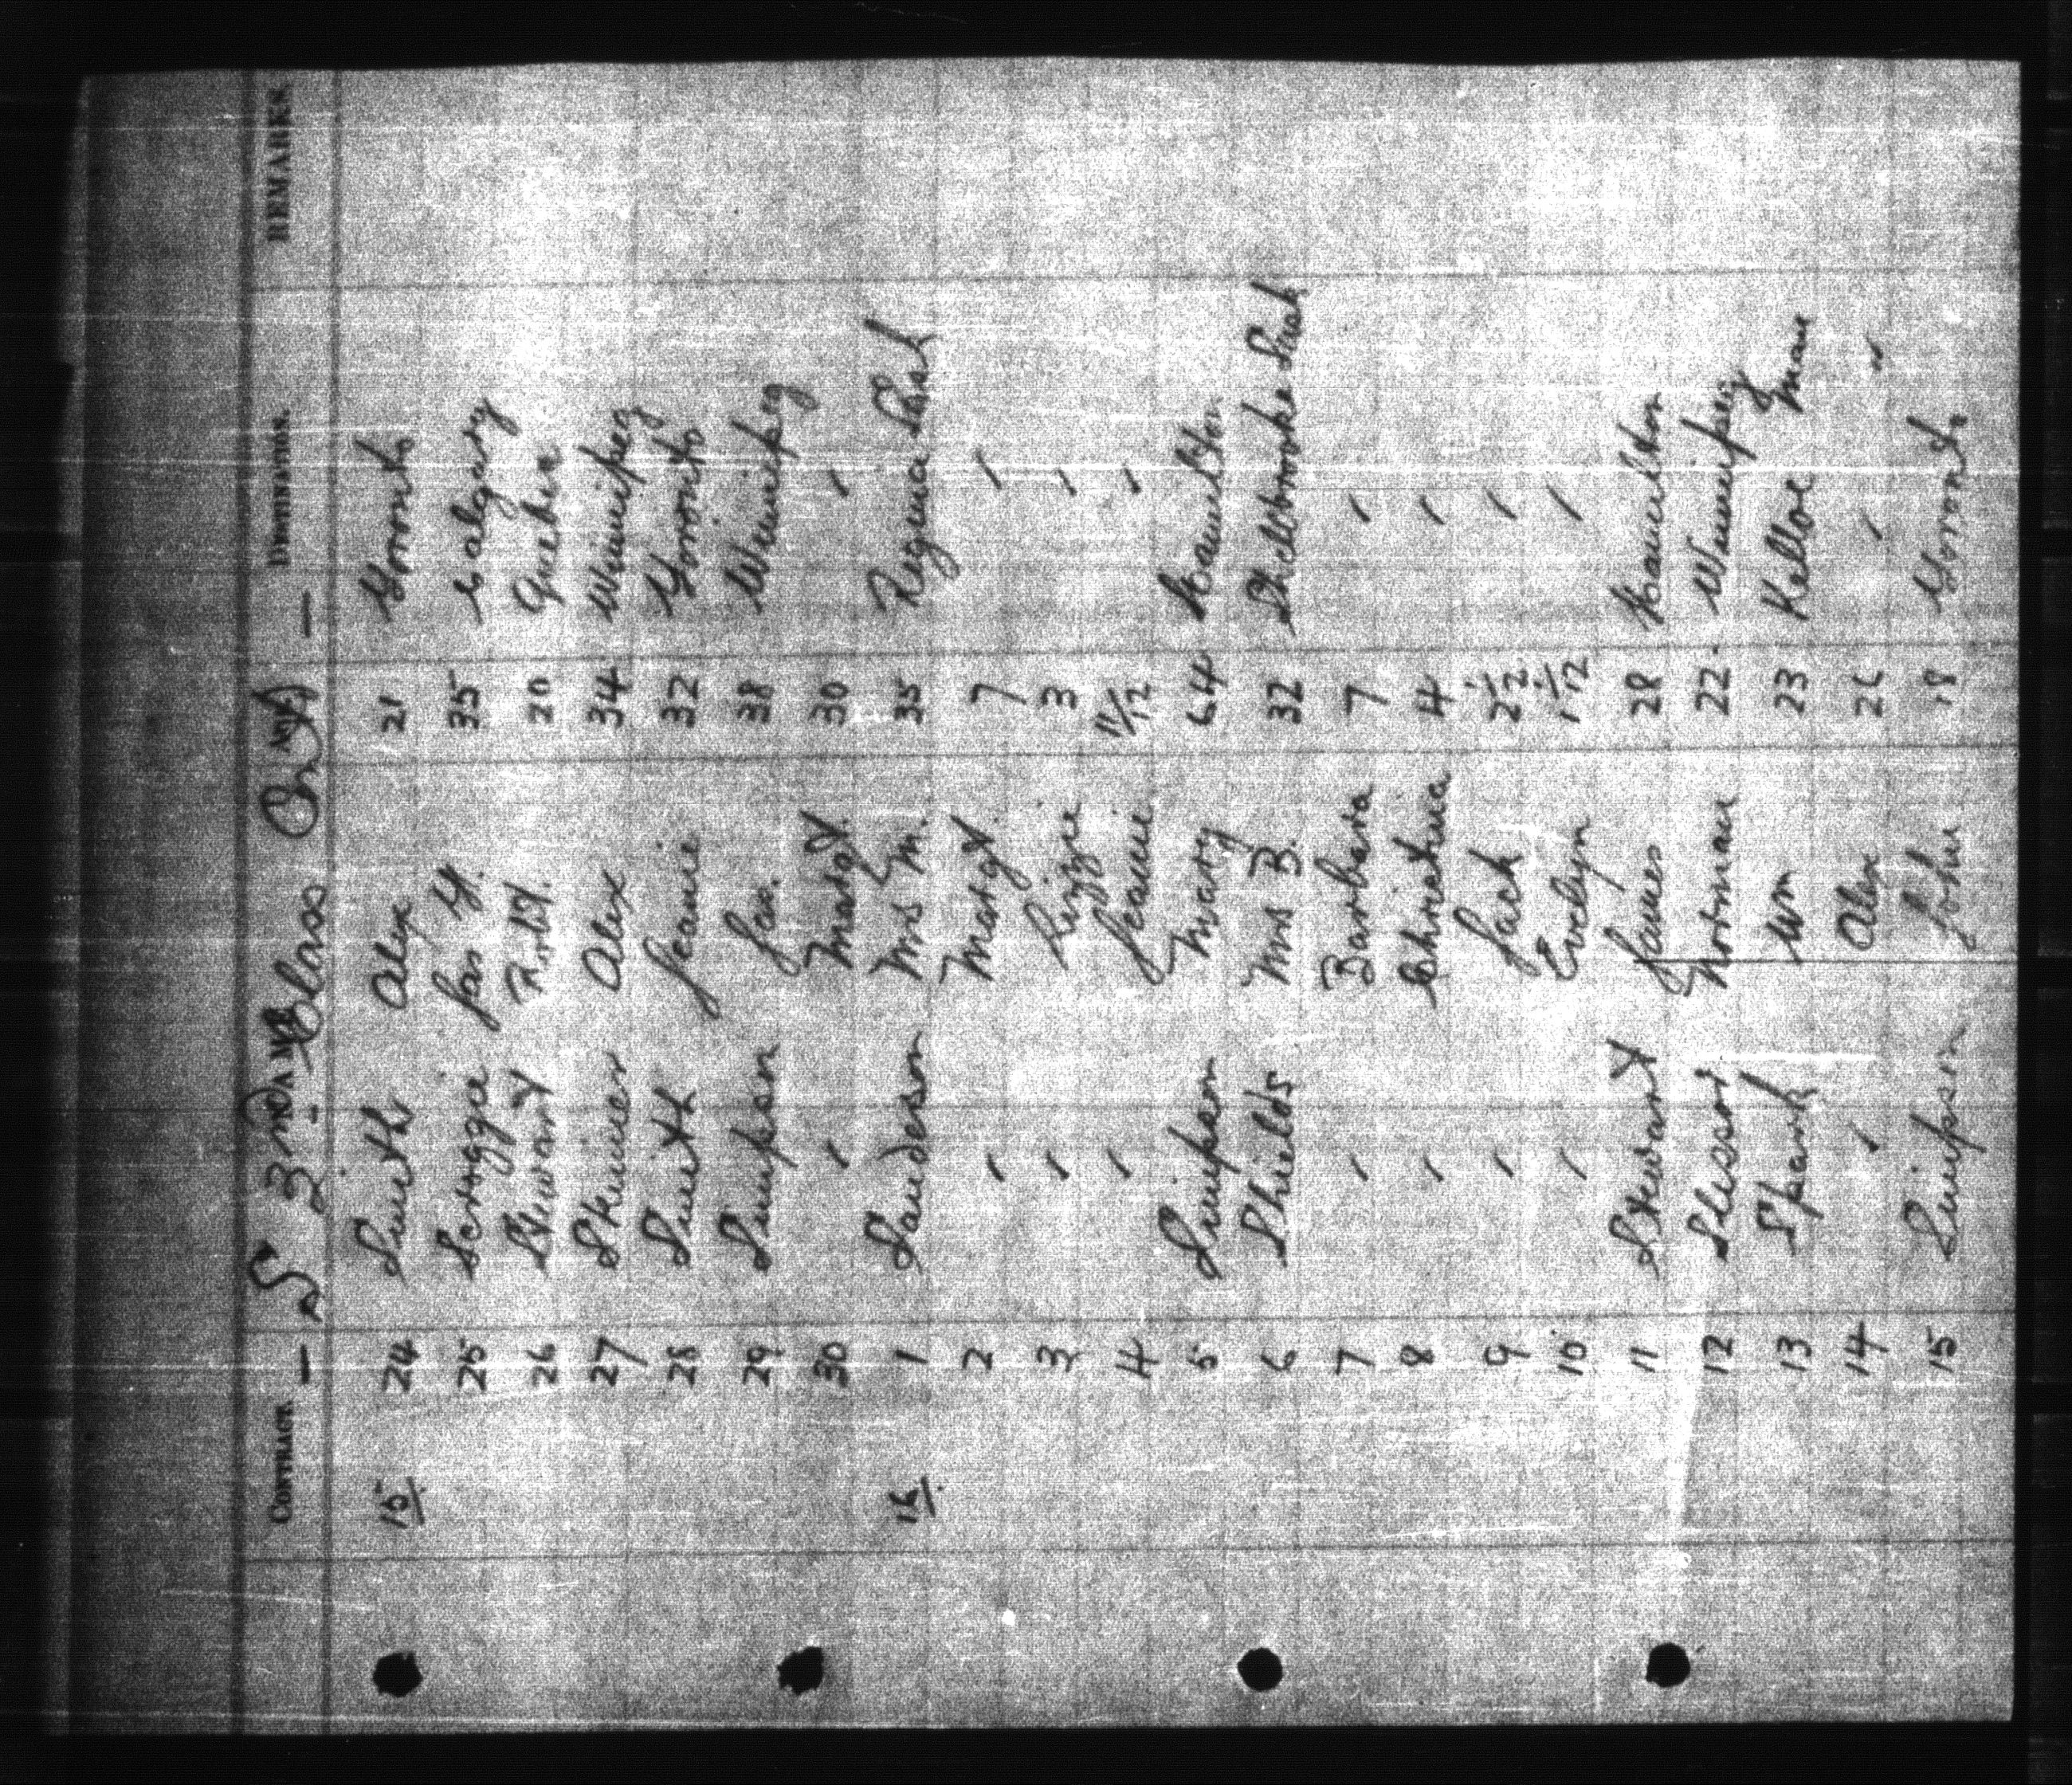 CONTRACT. — S 2nd Class Only — DESTINATION. REMARKS.
15/ 24 Smith Alex 21 Toronto
25 Scroggie Jas Y. 35 Calgary
26 Stewart Robt. 20 Quebec
27 Skinner Alex 34 Winnipeg
28 Smith Jeanie 32 Toronto
29 Simpson Jas. 38 Winnipeg
30 " Margt. 30 "
16/. 1 Sanderson Mrs M. 35 Regina Sask
2 " Margt. 7 "
3 " Lizzie 3 "
4 " Jeanie 11/12 "
5 Simpson Mary 64 Hamilton
6 Shields Mrs B. 32 Shellbrooke Sask
7 " Barbara 7 "
8 " Christina 4 "
9 " Jack 2 1/2 "
10 " Evelyn 1 1/12 "
11 Stewart James 28 Hamilton
12 Slessor Norman 22 Winnipeg
13 Spark Wm 23 Kelloe Man
14 " Alex 26 " "
15 Simpson John 18 Toronto